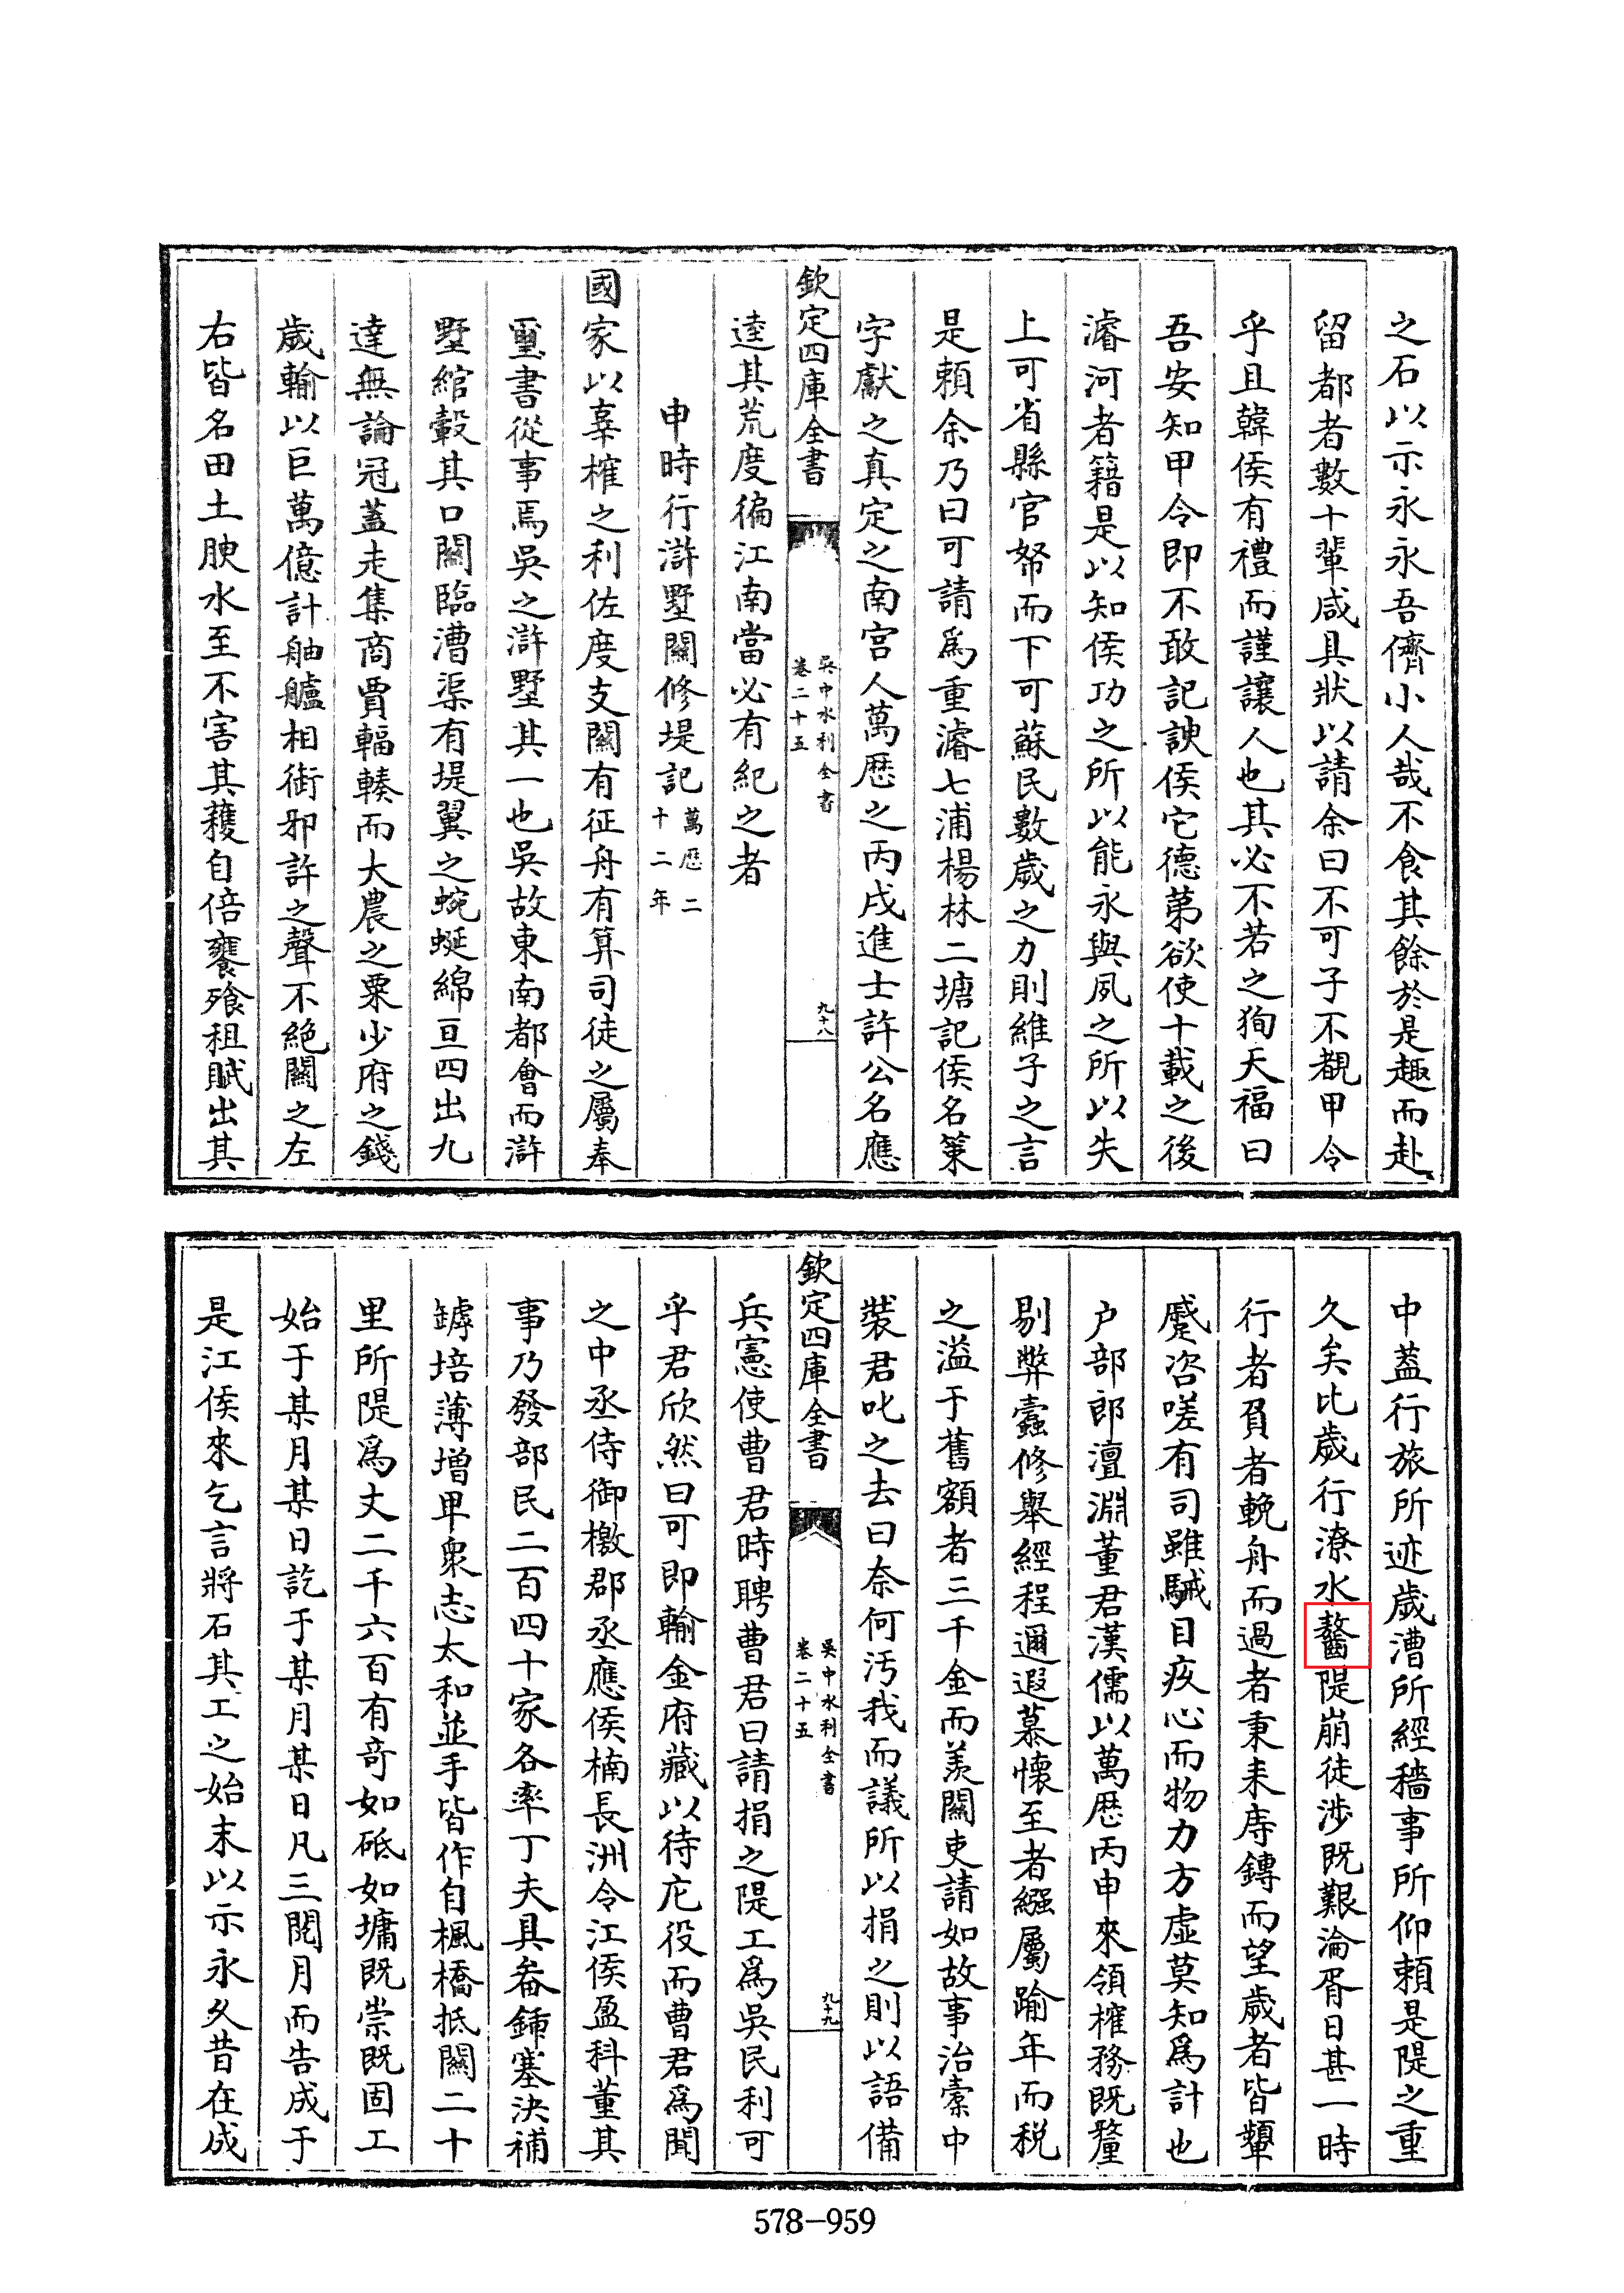 之石以示永永吾儕小人哉不食其餘於是趣而赴
留都者數十輩咸具狀以請余曰不可子不覩甲令
乎且韓侯有禮而謹讓人也其必不若之狥天福曰
吾安知甲令即不敢記諛侯它德第欲使十載之後
濬河者籍是以知侯功之所以能永與夙之所以失
上可省縣官帑而下可蘇民數歲之力則維子之言
是賴余乃曰可請爲重濬七浦楊林二塘記侯名策
字獻之真定之南宫人萬厯之丙戌進士許公名應
欽定四庫全書
吳中水利全書
卷二十五
九十八
逵其荒度徧江南當必有紀之者
申時行滸墅關修堤記萬厯二
十二年
國家以辜榷之利佐度支關有征舟有算司徒之屬奉
璽書從事焉吳之滸墅其一也吳故東南都會而滸
墅綰轂其口關臨漕渠有堤翼之蜿蜒綿亘四出九
達無論冠蓋走集商賈輻輳而大農之粟少府之錢
歲輸以巨萬億計舳艫相銜邪許之聲不絶關之左
右皆名田土腴水至不害其穫自倍饔飱租賦出其
中葢行旅所迹歲漕所經穡事所仰賴是隄之重
久矣比歲行潦水齧隄崩徒涉既艱淪胥日甚一時
行者負者輓舟而過者秉耒庤鎛而望歲者皆顰
蹙咨嗟有司雖駴目疚心而物力方虛莫知爲計也
户部郎澶淵董君漢儒以萬厯丙申來領榷務既釐
剔弊蠹修舉經程邇遐慕懷至者繦屬踰年而税
之溢于舊額者三千金而羡關吏請如故事治橐中
裝君叱之去曰奈何汚我而議所以捐之則以語備
欽定四庫全書
吳中水利全書
卷二十五
九十九
兵憲使曹君時聘曹君曰請捐之隄工爲吳民利可
乎君欣然曰可即輸金府藏以待庀役而曹君爲聞
之中丞侍御檄郡丞應侯楠長洲令江侯盈科董其
事乃發部民二百四十家各率丁夫具畚鍤塞決補
罅培薄增卑衆志太和並手皆作自楓橋抵關二十
里所隄爲丈二千六百有奇如砥如墉既崇既固工
始于某月某日訖于某月某日凡三閲月而告成于
是江侯來乞言將石其工之始末以示永久昔在成
578-959